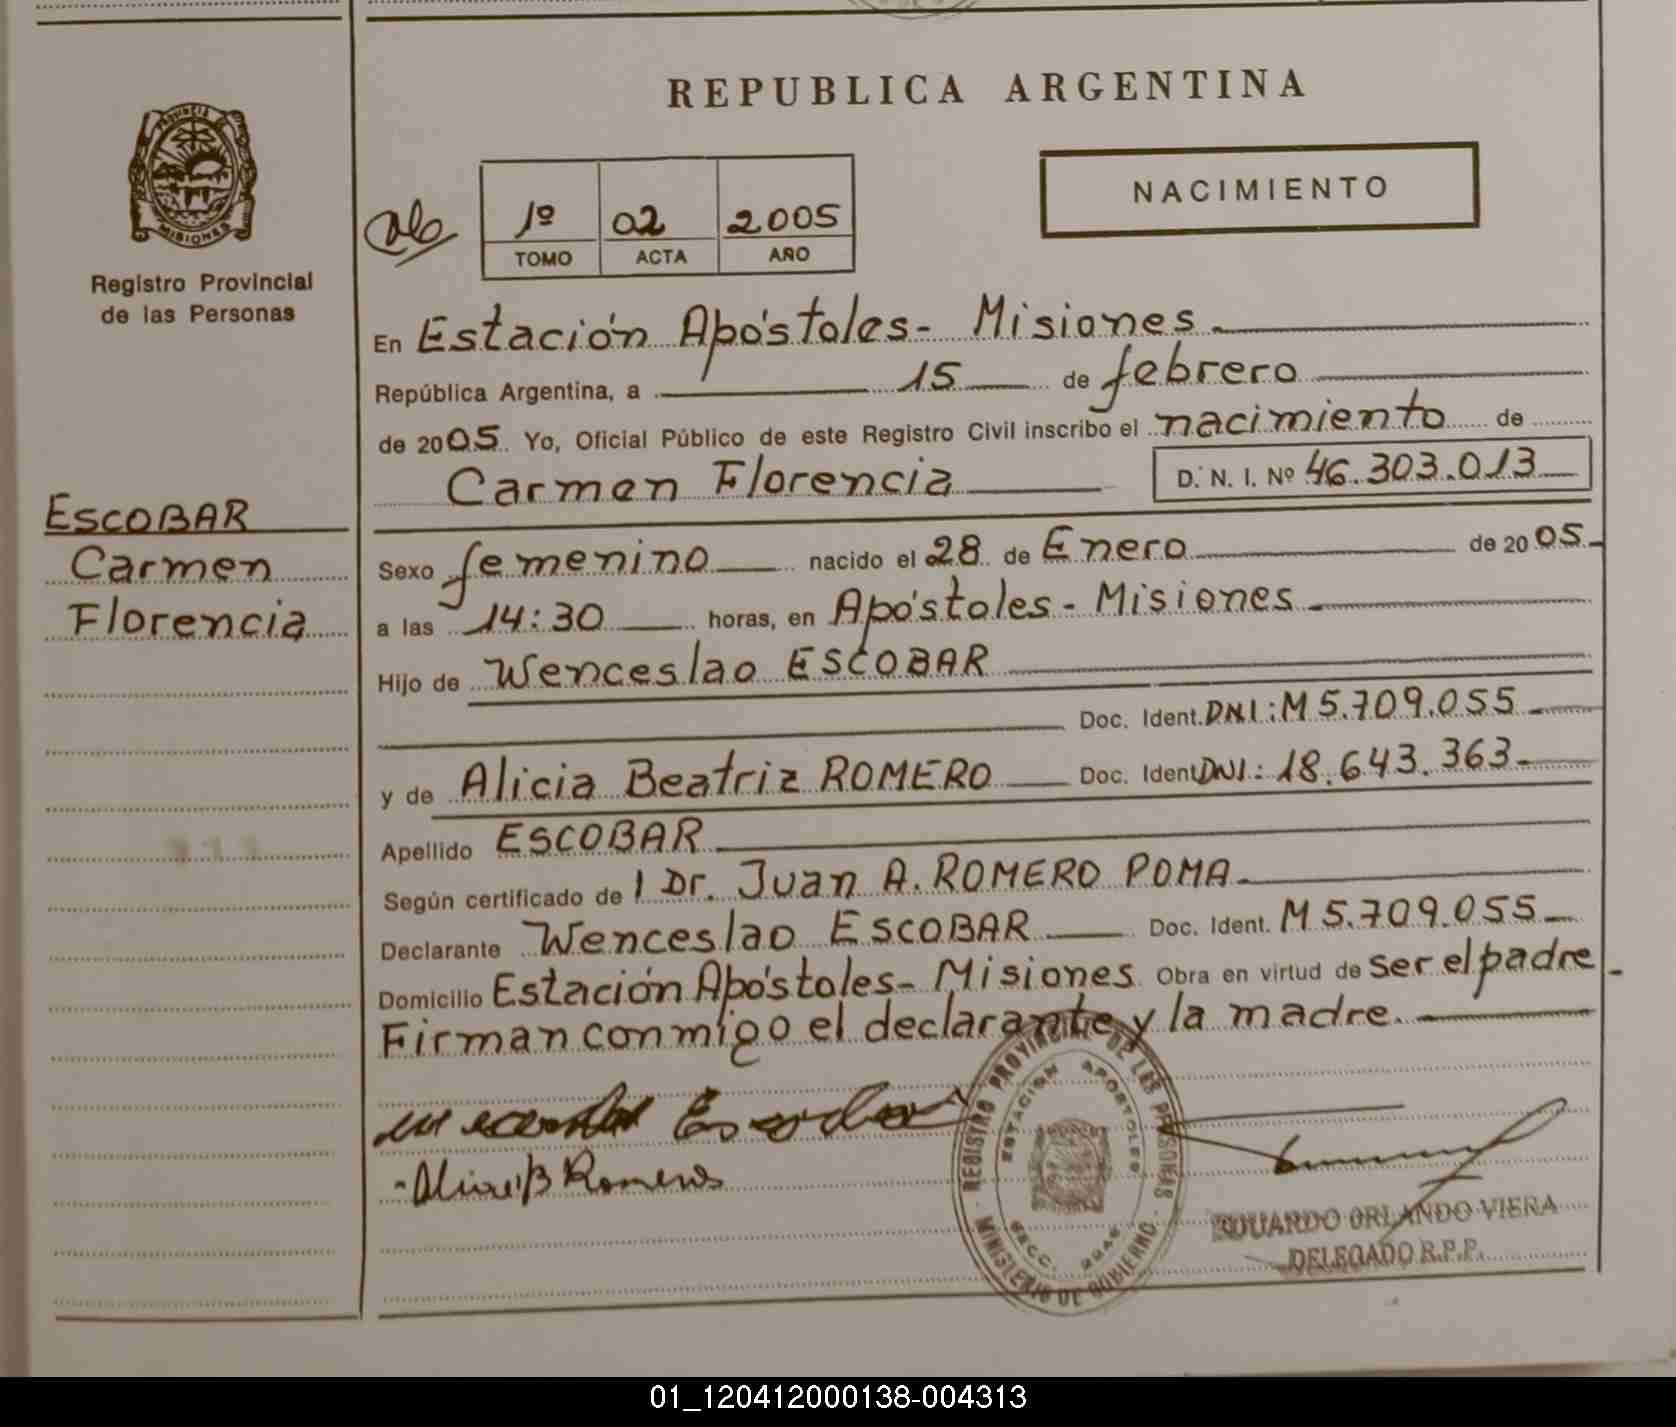 REPUBLICA ARGENTINA
PROVINCIA DE
MISIONES
Registro Provincial
de las Personas
1º 02 2005
TOMO ACTA AÑO
NACIMIENTO
En Estación Apóstoles - Misiones
República Argentina, a 15 de febrero
de 2005 Yo, Oficial Público de este Registro Civil inscribo el nacimiento de
Carmen Florencia D. N. I. Nº 46.303.013
ESCOBAR
Carmen
Florencia
Sexo femenino nacido el 28 de Enero de 2005
a las 14:30 horas, en Apóstoles - Misiones
Hijo de Wenceslao ESCOBAR
Doc. Ident. DNI: M 5.709.055
y de Alicia Beatriz ROMERO Doc. Ident DNI: 18.643.363
Apellido ESCOBAR
Según certificado de l Dr. Juan A. ROMERO POMA
Declarante Wenceslao ESCOBAR Doc. Ident. M 5.709.055
Domicilio Estación Apóstoles - Misiones Obra en virtud de ser el padre
Firman conmigo el declarante y la madre.
Alicia B Romero
REGISTRO PROVINCIAL DE LAS PERSONAS
ESTACION APOSTOLES
SECC.
MINISTERIO DE GOBIERNO
EDUARDO ORLANDO VIERA
DELEGADO R.P.P.
01_120412000138-004313